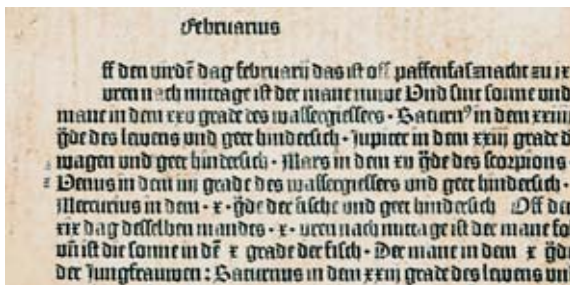 Februarius
ff den virdē dag februarij das ist off paffenfasznacht zu ix
vren nach mittage ist der mane nuwe Vnd sint sonne vnd
mane in dem xxv grade des wassergiessers · Saturnꝰ in dem xxiiii
g̃de des lewens vnd geet hindersich · Jupiter in dem xxiij grade d
wagen vnd geet hindersich · Mars in dem xij g̃de des scorpions ·
Venus in dem iiij grade des wassergiessers vnd geet hindersich ·
Mercurius in dem · x · g̃de der fische vnd geet hindersich Off de
xix dag desselben mandes · x · vren nach mittage ist der mane fo
vn̄ ist die sonne in dē x grade der fisch · Der mane in dem x g̃d
der Jungfrauwen : Saturnus in dem xxij grade des lewens vn